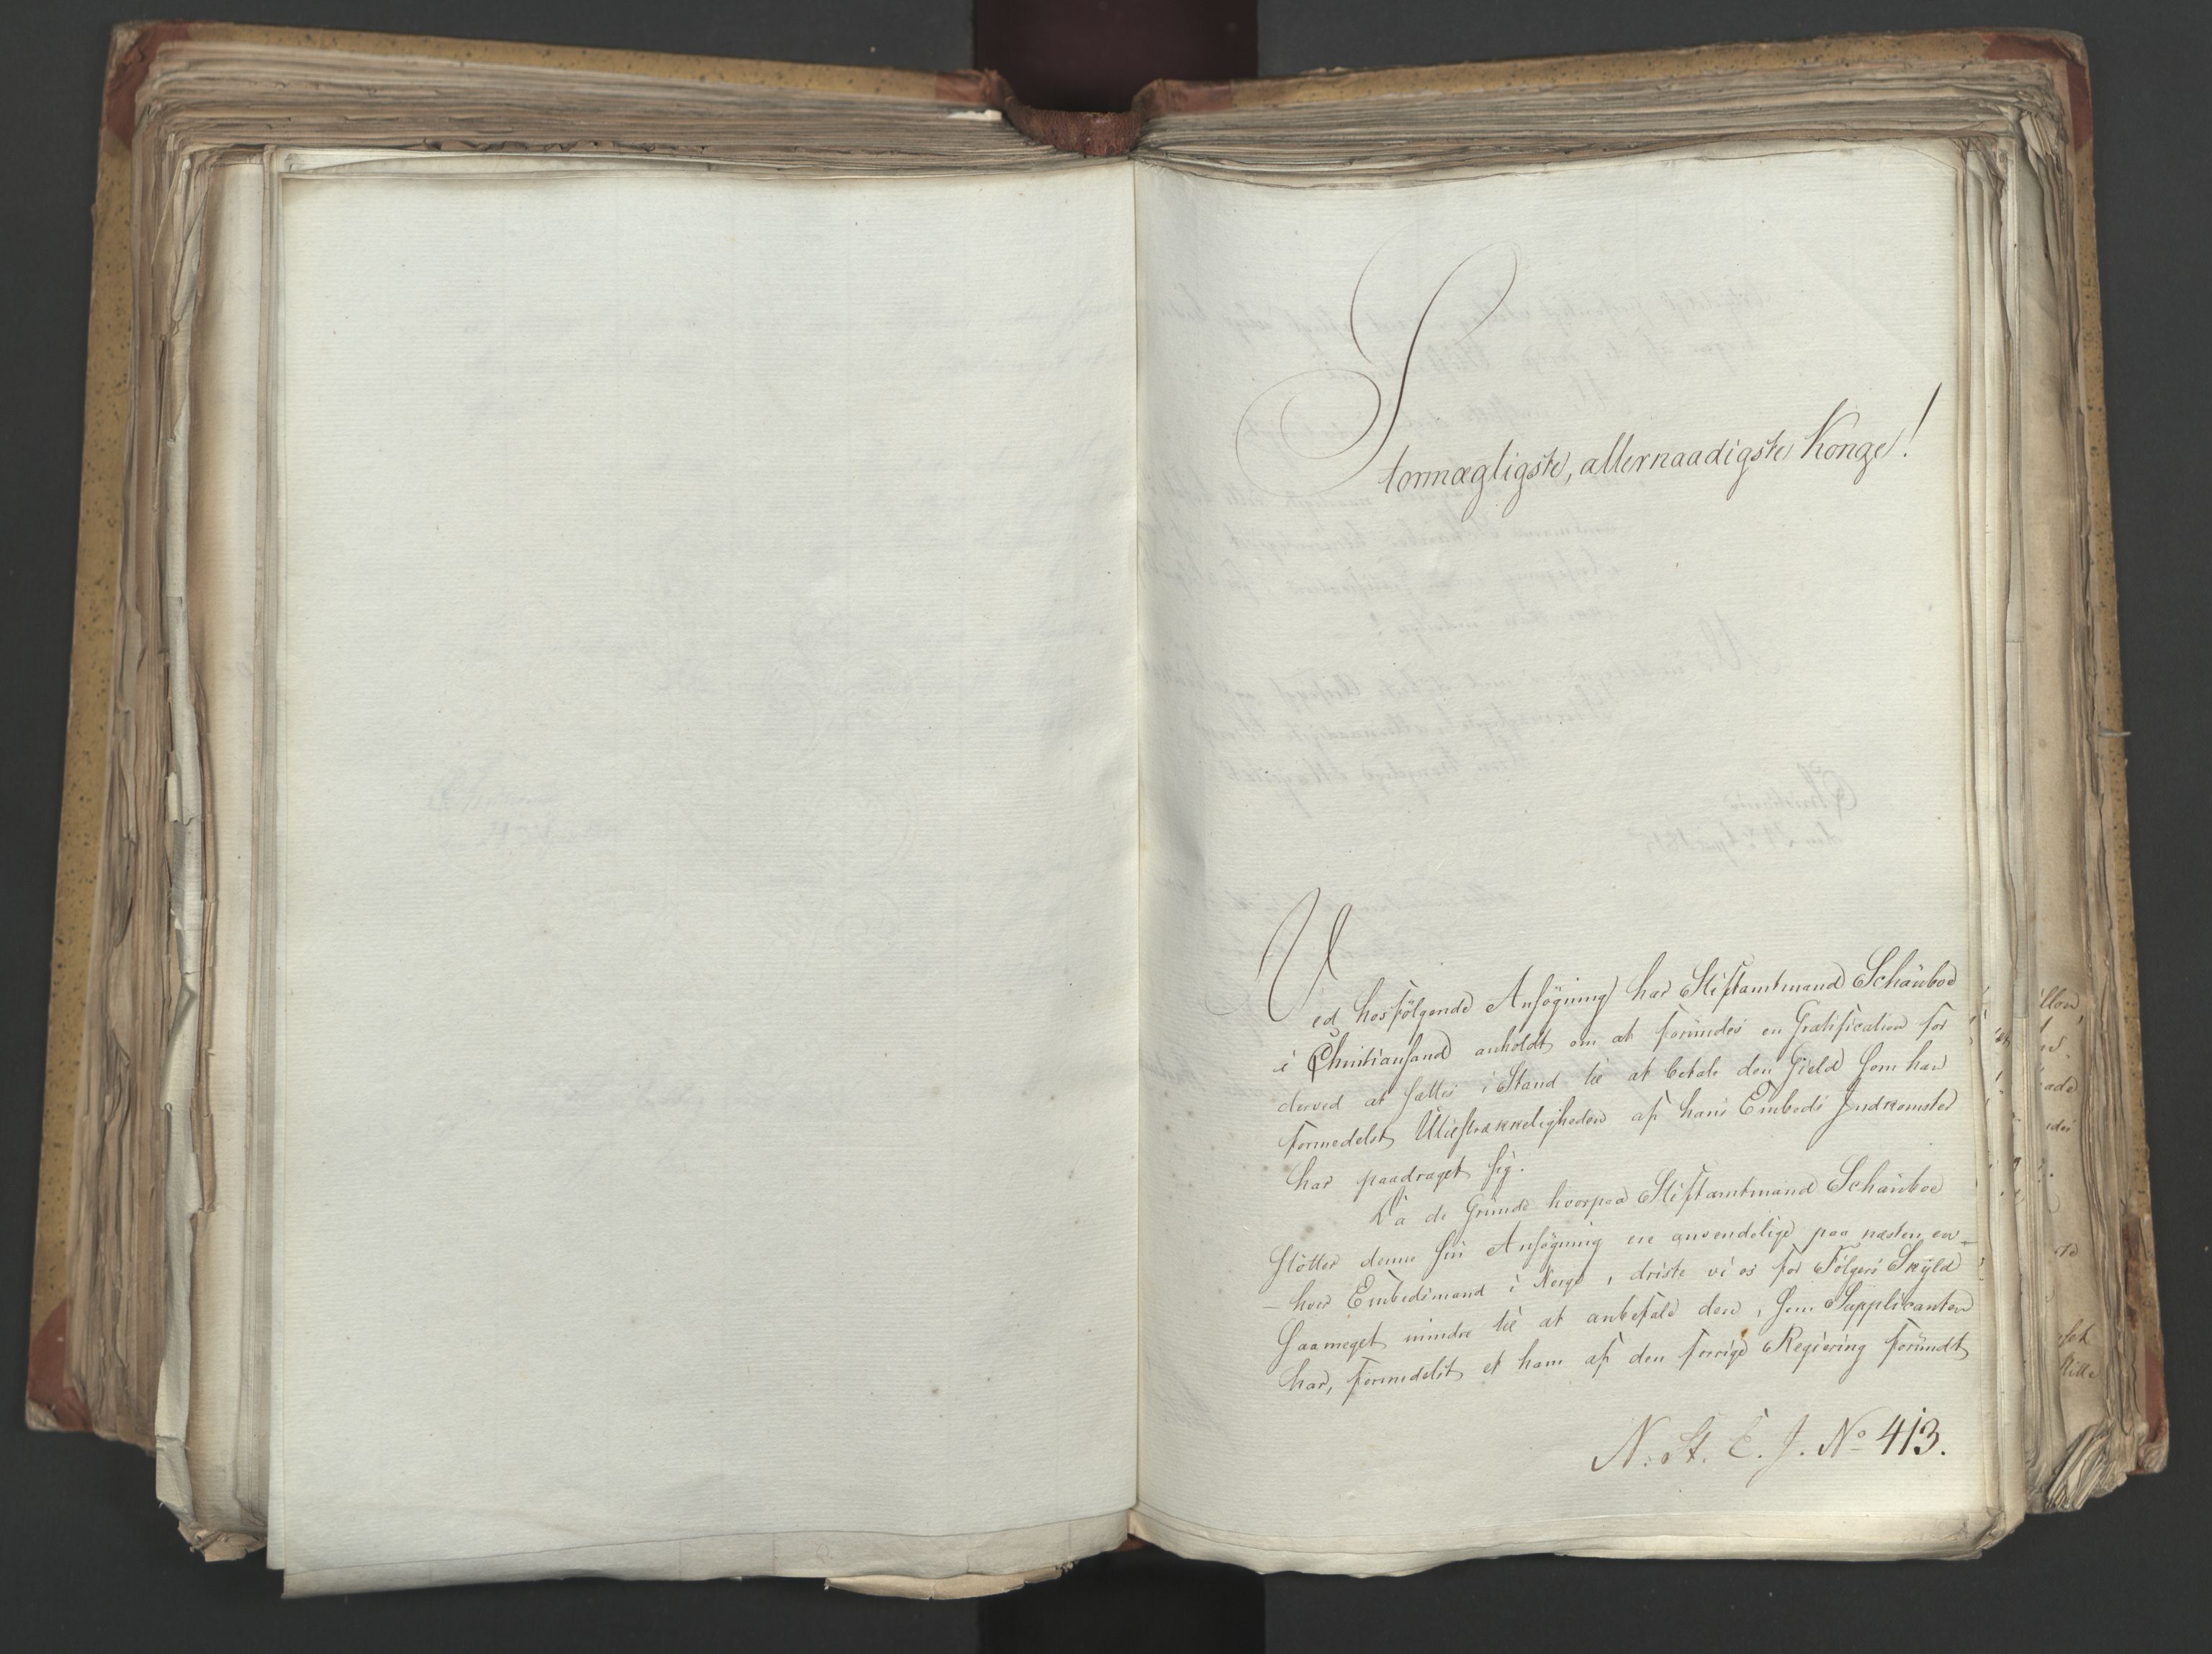 Stormægtigste, allernaadigste Konge!
Ved hosfölgende Ansögning har Stiftamtmand Schouboe
i Christiansand anholdt om at forundes en Gratification for
derved at sættes i Stand til at betale den Gield som han
formedelst Utilstrækkeligheden af hans Embeds Indkomster
har paadraget sig.
Da de Grunde hvorpaa Stiftamtmand Schouboe
stötter denne sin Ansögning ere anvendelige paa næsten en-
-hver Embedsmand i Norge, driste vi os for Fölgers Skyld
saameget mindre til at anbefale den, som Supplicanten
har, formedelst et ham af den forrige Regiering forundt
N. St. E. J. No 413.